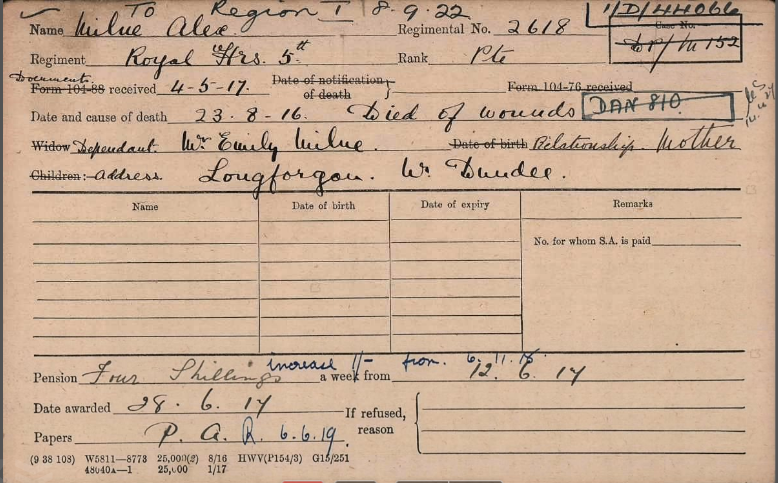 TO Region I 8.9.22 1/D/44066
Name Milne Alex. Regimental No. 2618 Case No.
Regiment Royal Hrs. 5th Rank Pte DP/M 152
Documents Form 104-88 received 4-5-17. Date of notification of death } Form 104-76 received
Date and cause of death 23.8.16. Died of wounds DAN 810
Widow Dependant. Mrs Emily Milne. Date of birth Relationship. Mother
Children: address. Longforgan. Nr. Dundee.
Name Date of birth Date of expiry Remarks
No. for whom S.A. is paid
increase 1/- from. 6.11.18
Pension Four Shillings a week from 12.6.17
Date awarded 28.6.17 If refused, reason
Papers P.A.R. 6.6.19.
(9 38 108) W5811—8773 25,000(2) 8/16 HWV(P154/3) G15/251
48040A—1 25,000 1/17